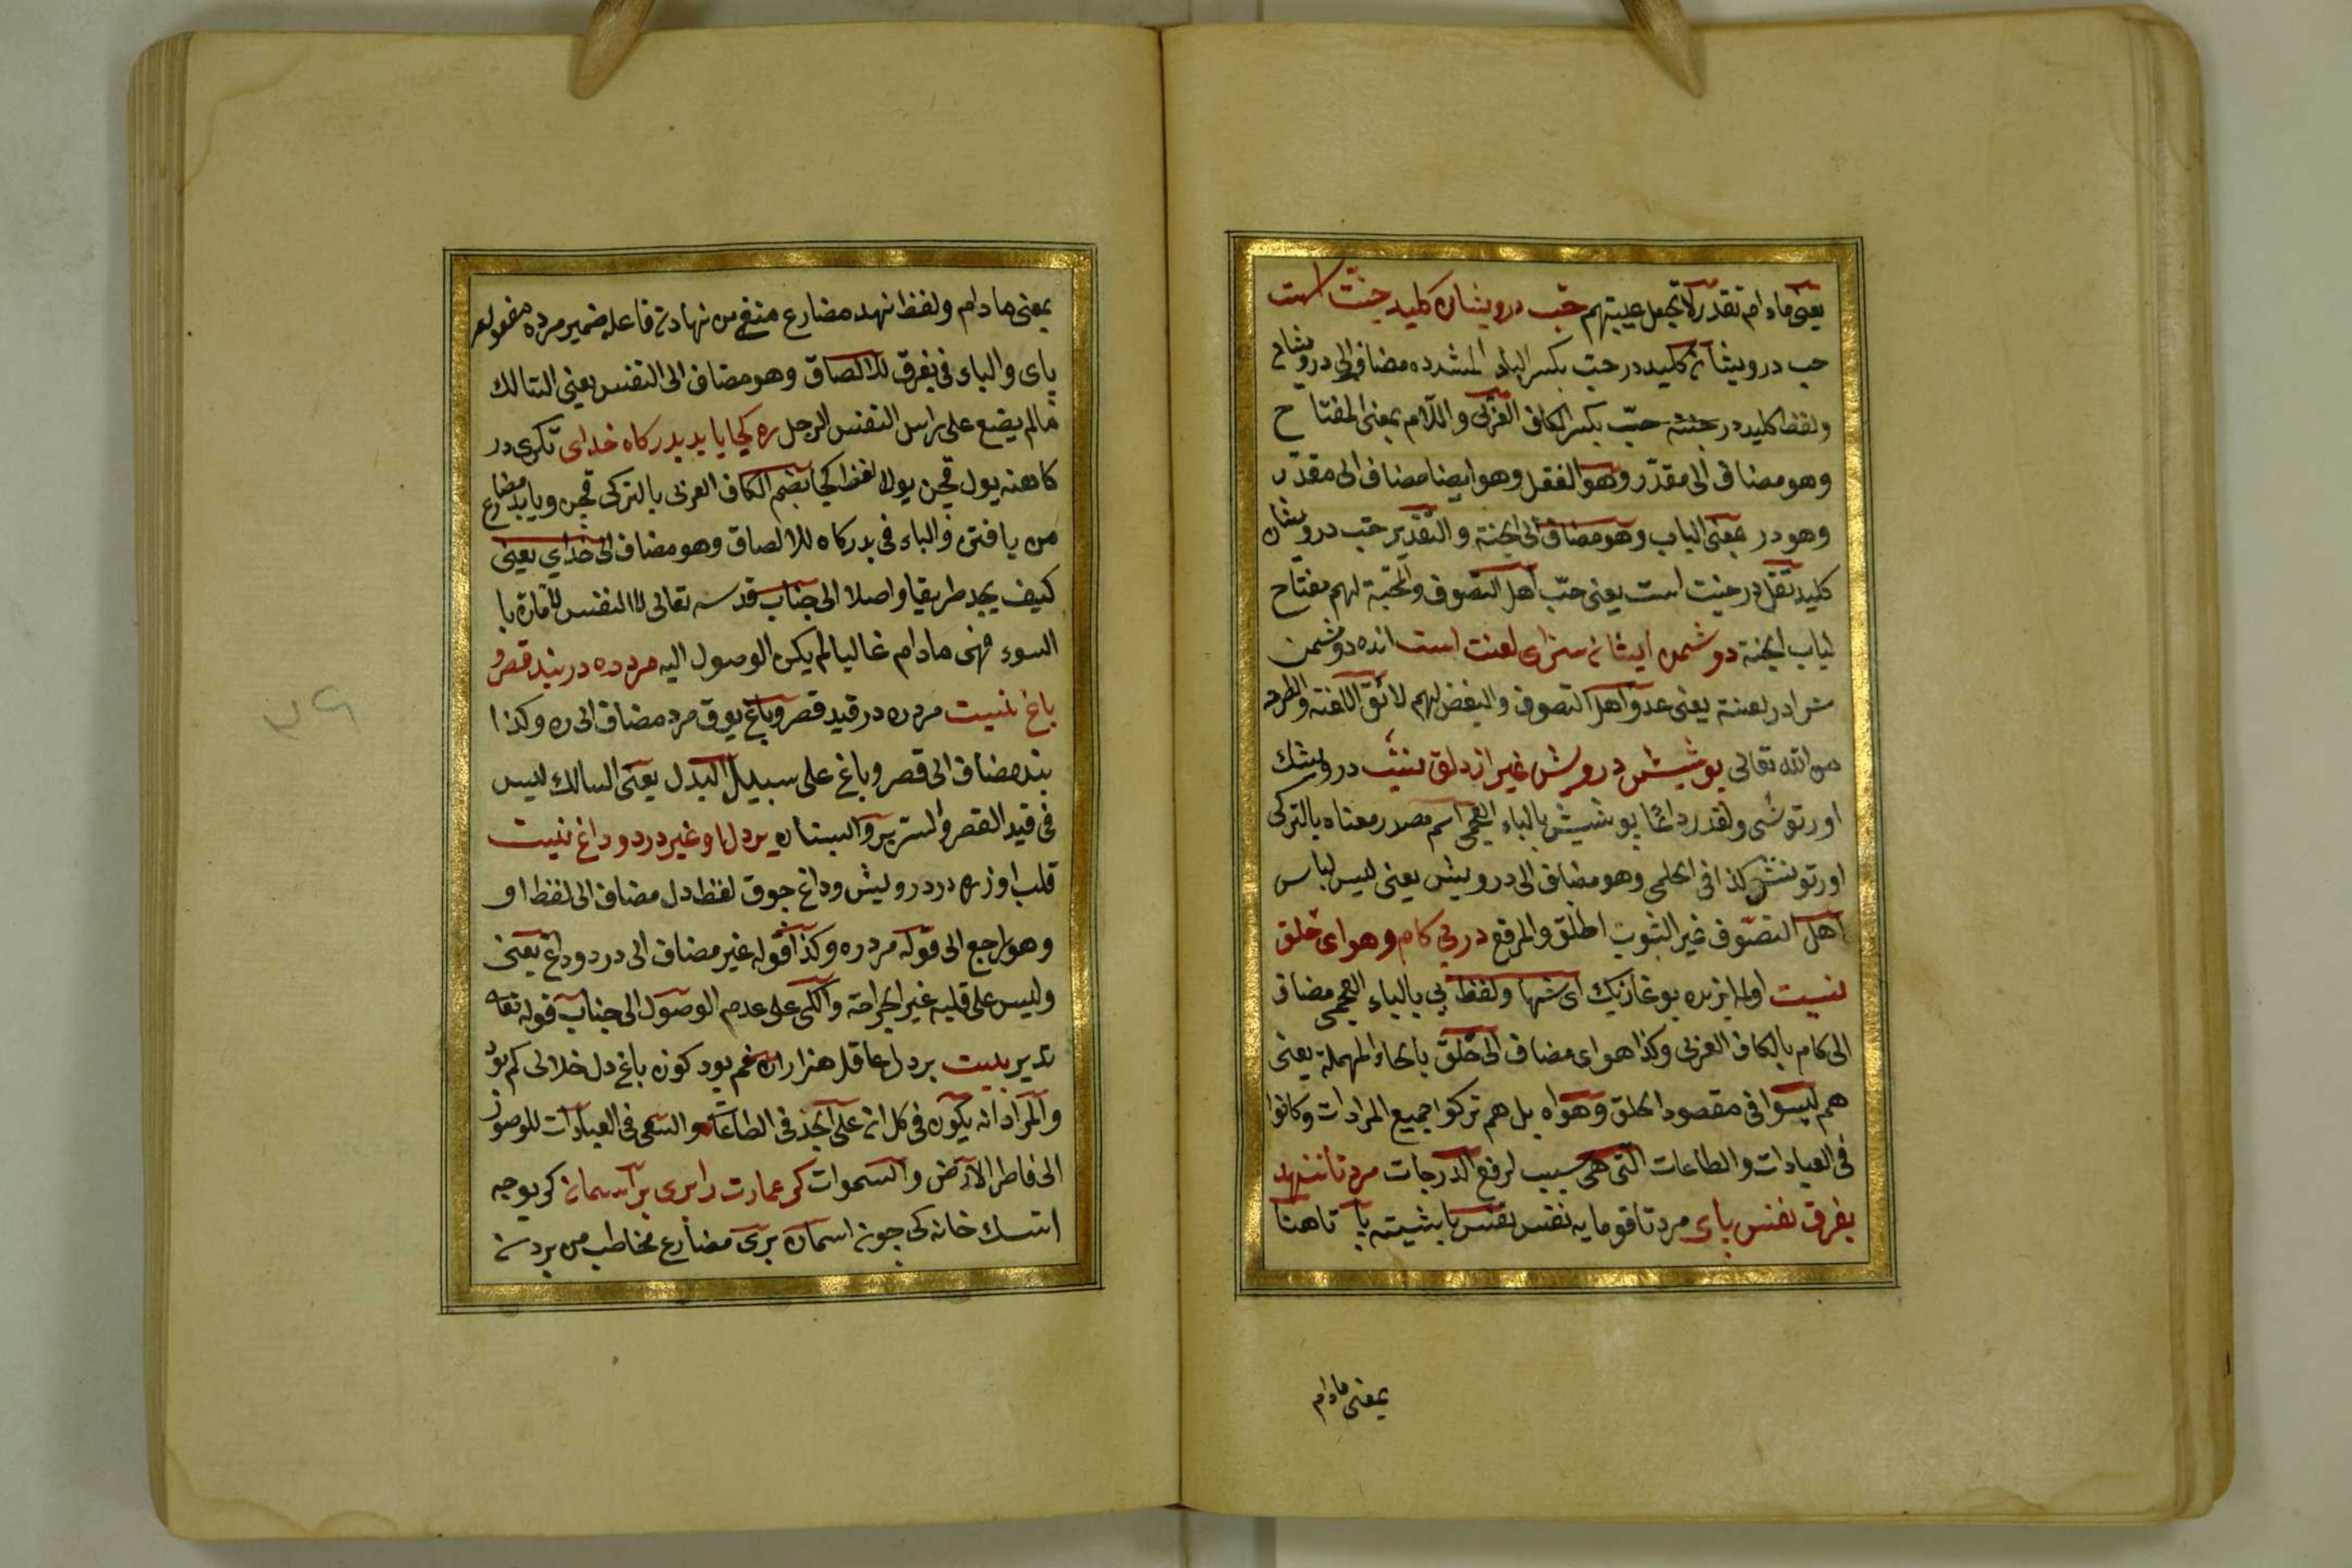 يعنى مادام تقدر لا تجعل غيبتهم حب درويشان كليد جنت است
حب درويشان كليد در حبّ بكسر الباء المشدده مضاف الى درويشان
ولفظ كليد در جنته حبّ بكسر الكاف العربى واللام بمعنى المفتاح
وهو مضاف الى مقدّر وهو القفل وهو ايضا مضاف الى مقدّر
وهو در بمعنى الباب وهو مضاف الى الجنة والتقدير حبّ درويشان
كليد قفل در جنت است يعنى حبّ اهل التصوف والمحبّة لهم مفتاح
لباب الجنة دوشمن ايشان سزاى لعنت است انده دوشمن
سزادر لعنته يعنى عدو اهل التصوف والبغض لهم لائق اللعنة والطرد
من الله تعالى پوشيش درويش غير از دلق نيست درويشك
اورتوشى ولقدر داغًا پوشيش بالباء العجمى اسم مصدر معناه بالتركى
اورتونش كذا فى الحلمى وهو مضاف الى درويش يعنى ليس لباس
اهل التصوف غير الثوب الخلق والمرقع در پى كام وهواى خلق
نيست اولمايزره بوغازيك اى شها ولفظ پى بالباء العجمى مضاف
الى كام بالكاف العربى وكذا هواى مضاف الى حلق بالحاء المهملة يعنى
هم ليسوا فى مقصود الحلق وهواه بل هم تركوا جميع المرادات وكانوا
فى العبادات والطاعات التى هى سبب لرفع الدرجات مرد تا ننهد
بفرق نفس پاى مرد تا قومايه نفس باشيته پا تا هنا
بمعنى مادام
بمعنى مادام ولفظ ننهد مضارع منفى من نهادن فاعله ضمير مرده مفعوله
پاى والباء فى بفرق للالصاق وهو مضاف الى النفس يعنى السالك
مالم يضع على راس النفس الرجل ره كجا يابد بدركاه خداى تكرى در
كاهنه يول قچن بولا لفظ كجا بضم الكاف العربى بالتركى قچن ويابد مضارع
من يافتن والباء فى بدركاه للالصاق وهو مضاف الى خداي يعنى
كيف يجد طريقا واصلا الى جناب قدسه تعالى لان النفس لامّارة با
السوء فهى مادام غالبا لم يكن الوصول اليه مرد ره در بند قصر و
باغ نيست مرد ره در قيد قصر وباغ يوق مرد مضاف الى ره وكذا
بند مضاف الى قصر وباغ على سبيل البدل يعنى السالك ليس
فى قيد القصر والسرير والبستان بر دل او غير درد وداغ نيست
قلب اوزره درد درويش وداغ چوق لفظ دل مضاف الى لفظ او
وهو راجع الى قوله مرد ره وكذا قوله غير مضاف الى درد وداغ يعنى
وليس على قلبه غير الجراحة والكى على عدم الوصول الى جناب قوله تعالى
تدير بيت بر دل عاقل هزاران غم بود كون باغ دل خلالى كم بود
والمراد انه يكون فى كل ان على الجد فى الطاعات والسعى فى العبادات للوصول
الى فاطر الارض والسموات كر عمارت را برى بر اسمان كر يوجه
ايتسك خانه كى چون اسمان برى مضارع مخاطب من بردن